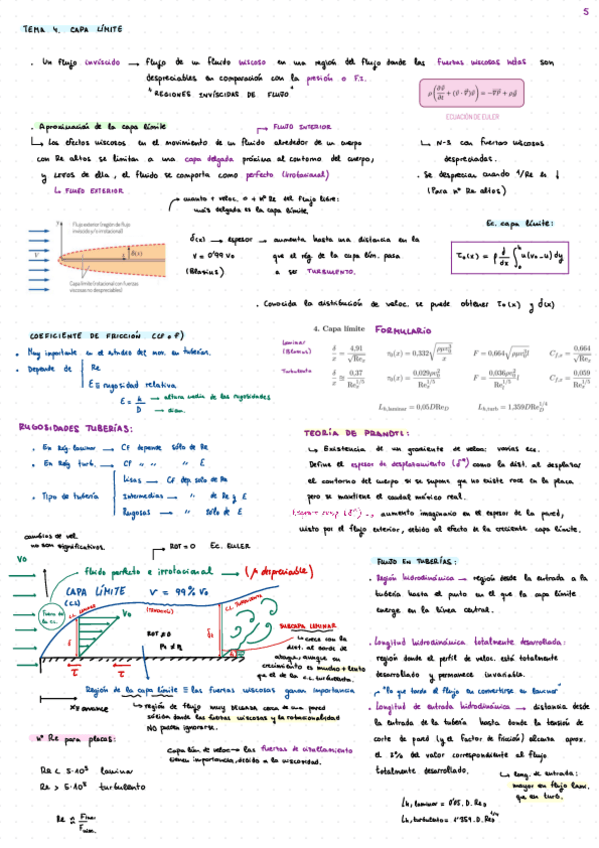 5
TEMA 4. CAPA LÍMITE
. Un flujo invíscido → flujo de un fluido viscoso en una región del flujo donde las fuerzas viscosas netas son
despreciables en comparación con la presión o F.I.
"REGIONES INVÍSCIDAS DE FLUJO"
ECUACIÓN DE EULER
. Aproximación de la capa límite
→ FLUJO INTERIOR
↳ Los efectos viscosos en el movimiento de un fluido alrededor de un cuerpo
con Re altos se limitan a una capa delgada próxima al contorno del cuerpo,
y lejos de ella, el fluido se comporta como perfecto (irrotacional)
↳ FLUJO EXTERIOR
↳ N-S con fuerzas viscosas
despreciadas.
. Se desprecian cuando 1/Re es ↓
(Para nº Re altos)
cuanto + veloc. o + nº Re del flujo libre:
más delgada es la capa límite.
Flujo exterior (región de flujo
invíscido y/o irrotacional)
y
V
δ(x)
x
Capa límite (rotacional con fuerzas
viscosas no despreciables)
δ(x) → espesor → aumenta hasta una distancia en la
V = 0'99 V₀ que el rég. de la capa lím. pasa
(Blasius) a ser TURBULENTO.
Ec. capa límite:
. Conocida la distribución de veloc. se puede obtener τ₀(x) y δ(x)
COEFICIENTE DE FRICCIÓN (Cf o f)
. Muy importante en el estudio del mov. en tuberías.
. Depende de Re
E ≡ rugosidad relativa
E = h/D → altura media de las rugosidades
→ diám.
4. Capa límite FORMULARIO
Laminar
(Blasius)
Turbulento
RUGOSIDADES TUBERÍAS:
. En Rég. laminar → Cf depende sólo de Re
. En Rég turb. → Cf " " " E
. Tipo de tubería
Lisas → Cf dep. solo de Re
Intermedias → " de Re y E
Rugosas → " sólo de E
TEORÍA DE PRANDTL:
↳ Existencia de un gradiente de veloc: varias ecs.
Define el espesor de desplazamiento (δ*) como la dist. al desplazar
el contorno del cuerpo si se supone que no existe roce en la placa
pero se mantiene el caudal másico real.
aumento imaginario en el espesor de la pared,
visto por el flujo exterior, debido al efecto de la creciente capa límite.
cambios de vel.
no son significativos.
ROT = 0 EC. EULER
V₀
fluido perfecto e irrotacional → (μ despreciable)
CAPA LÍMITE V = 99% V₀
(CL)
Fuera de
la CL.
C.L. LAMINAR
C.L. TURBULENTA
V₀
ROT ≠ 0
SUBCAPA LAMINAR
↳ crece con la
dist. al borde de
ataque, aunque su
crecimiento es mucho + lento
que el de la c.L. turbulenta.
τ τ
x ≡ avance
Región de la capa límite ≡ las fuerzas viscosas ganan importancia
↳ región de flujo muy delgada cerca de una pared
sólida donde las fuerzas viscosas y la rotacionalidad
NO pueden ignorarse.
Nº Re para placas:
Re < 5·10⁵ laminar
Re > 5·10⁵ turbulento
Capa lím. de veloc → las fuerzas de cizallamiento
tienen importancia, debido a la viscosidad.
FLUJO EN TUBERÍAS:
. Región hidrodinámica → región desde la entrada a la
tubería hasta el punto en el que la capa límite
emerge en la línea central.
. Longitud hidrodinámica totalmente desarrollada:
región donde el perfil de veloc. está totalmente
desarrollado y permanece invariable.
"lo que tarda el flujo en convertirse en laminar"
. Longitud de entrada hidrodinámica → distancia desde
la entrada de la tubería hasta donde la tensión de
corte de pared (y el factor de fricción) alcanza aprox.
el 2% del valor correspondiente al flujo
totalmente desarrollado.
↳ long. de entrada:
mayor en flujo lam.
que en turb.
Lh, laminar = 0'05. D. Re_D
Lh, turbulento = 1'359. D. Re_D^1/4